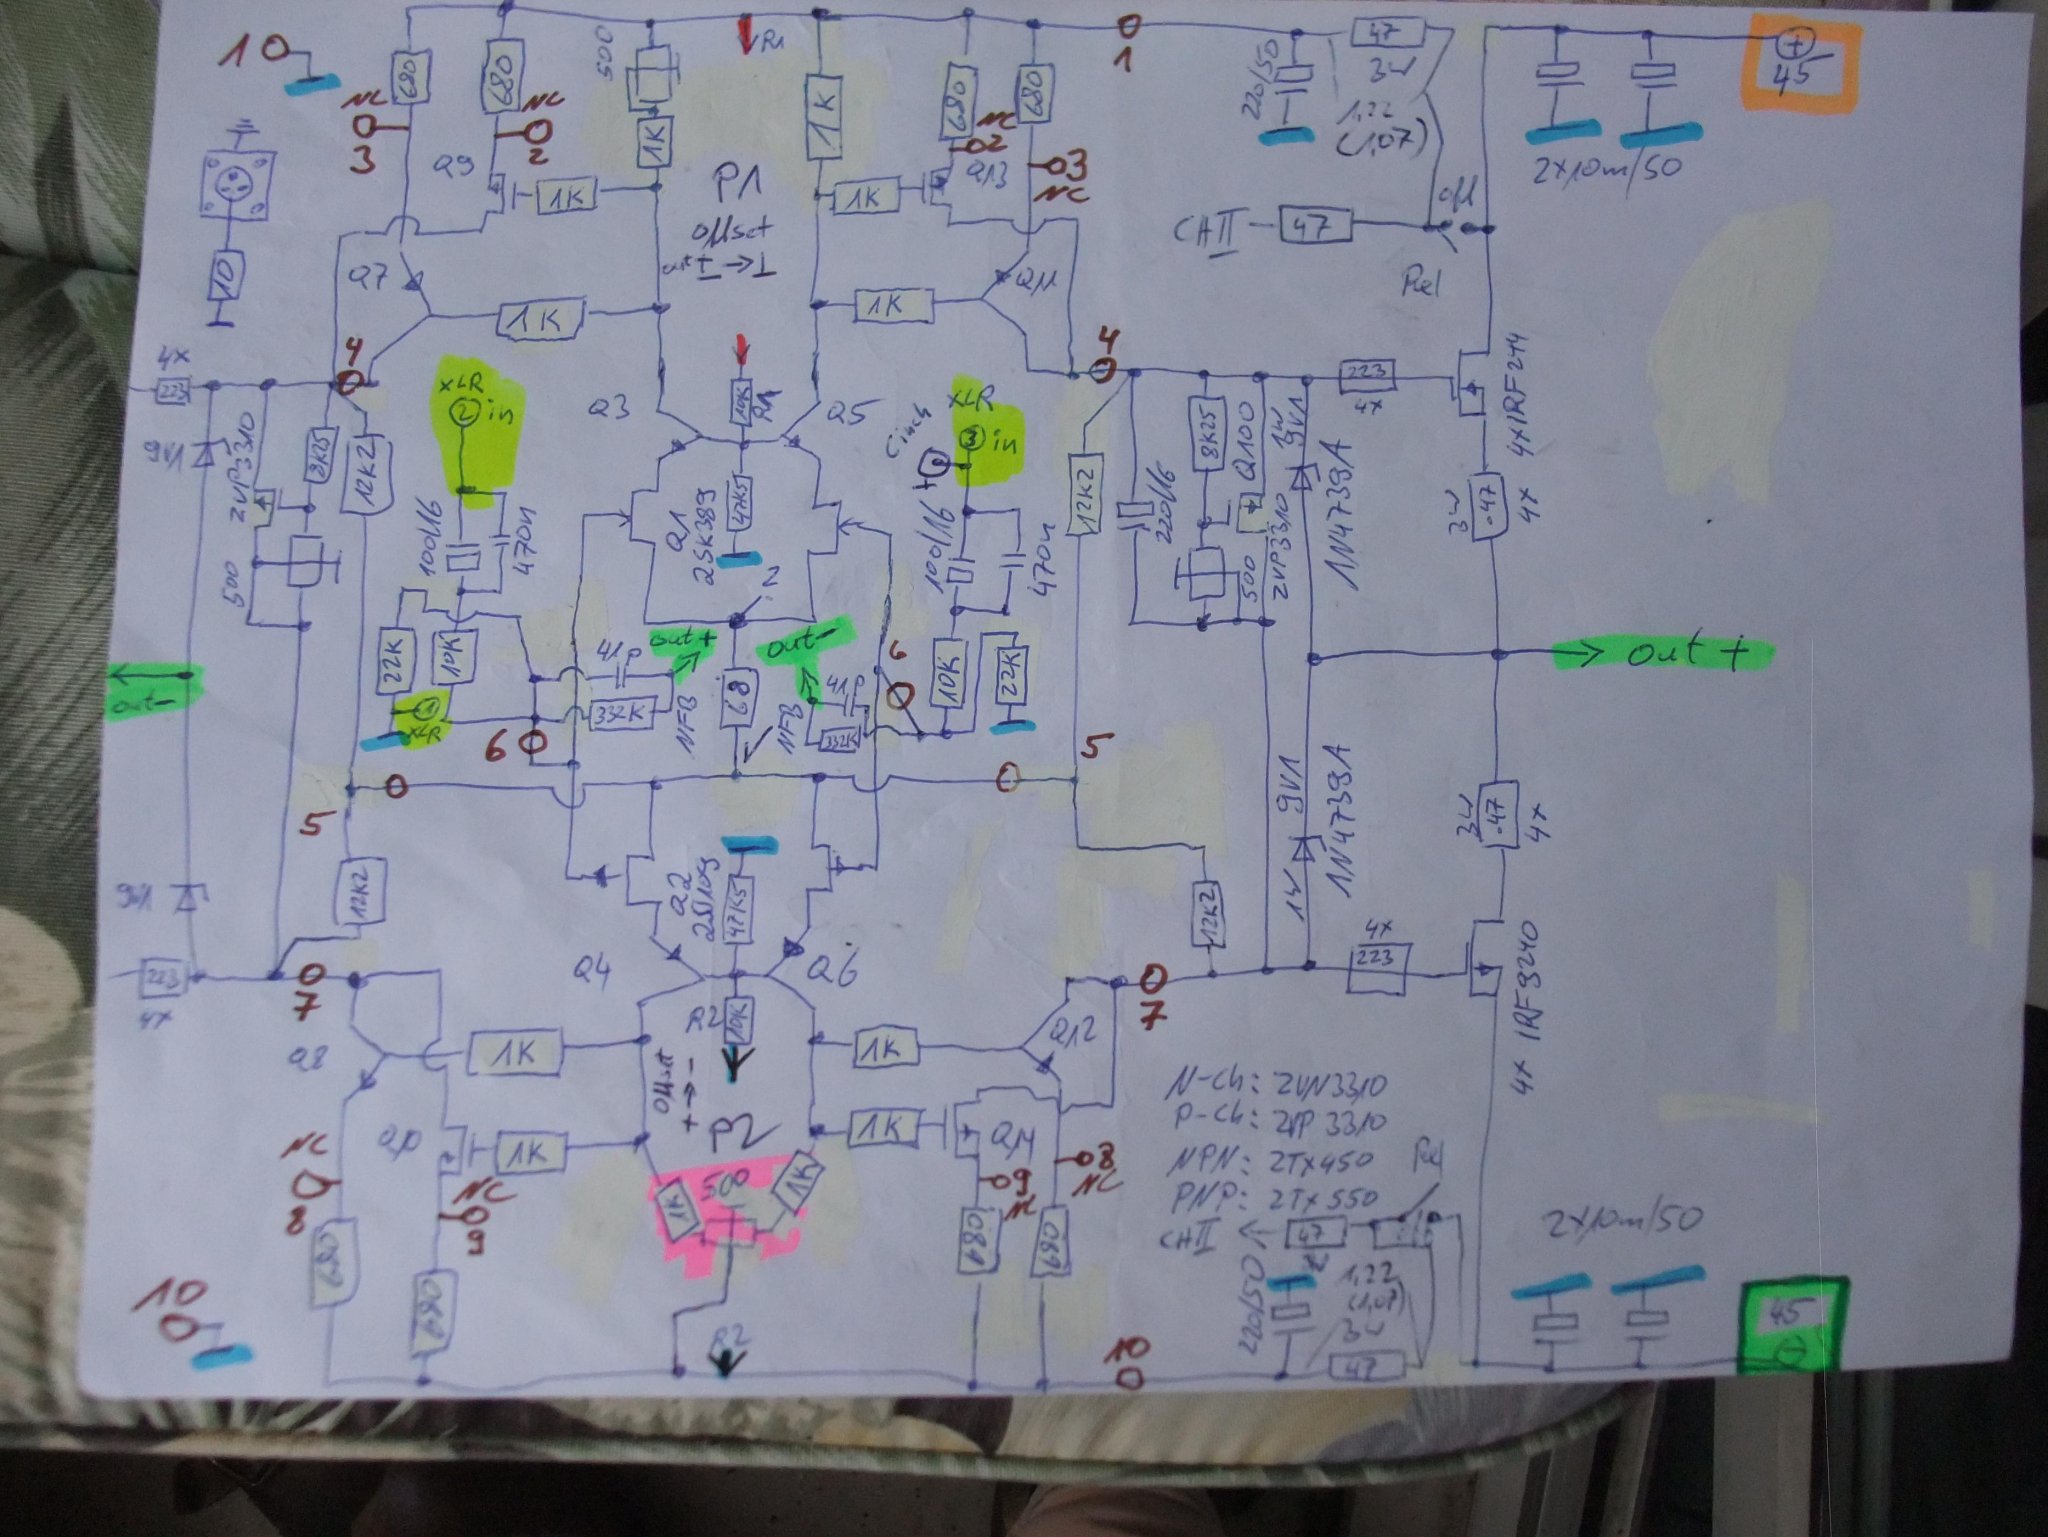 10
3
NC
680
680
NC
2
Q9
1K
500
1K
R1
P1
Offset
1K
1K
680
NC
2
Q13
680
3
NC
1
220/50
47
3W
1,22
(1,07)
CHII
47
off
Rel
2x10m/50
+
45
10
Q7
1K
1K
Q11
4x
223
4
9V1
ZVP3310
8K25
12K2
500
XLR
2
in
100/16
470n
22K
10K
1
XLR
Q3
10K
R1
Q5
Q1
2SK389
47K5
Cinch
XLR
3
in
100/16
470n
10K
22K
4
12K2
220/16
8K25
Q100
500
ZVP3310
1W
9V1
1N4739A
223
4x
4x IRF244
3W
.47
4x
out-
6
41p
332K
NFB
out+
68
out-
NFB
41p
332K
6
out +
5
5
12K2
12K2
9V1
223
4x
7
Q4
Q2
2SJ109
47K5
Q6
R2
10K
7
9V1
1W
1N4739A
4x
223
3W
.47
4x
4x IRF9240
Q8
1K
Offset
+→-
P2
500
1K
1K
1K
1K
Q12
1K
Q14
NC
8
680
NC
9
680
9
680
8
NC
680
N-Ch: ZVN3310
P-Ch: ZVP3310
NPN: ZTX450
PNP: ZTX550
CHII
47
Rel
220/50
1,22
(1,07)
3W
47
2x10m/50
45
-
10
R2
10